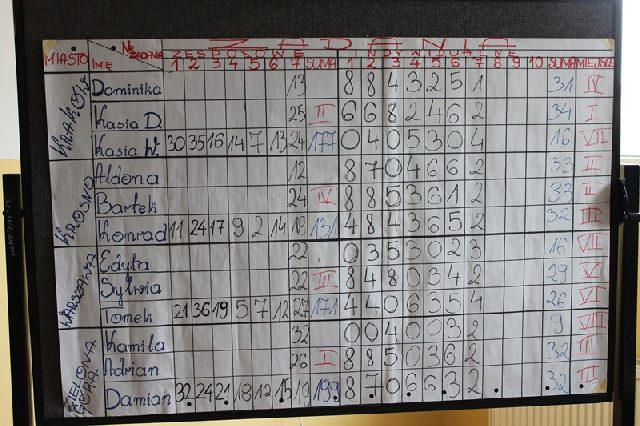 MIASTO IMIĘ Nr ZADANIA ZESPOŁOWE ZADANIA INDYWIDUALNE
1 2 3 4 5 6 7 SUMA 1 2 3 4 5 6 7 8 9 10 SUMA MIEJSCE
KRAKÓW
Dominika 13 8 8 4 3 2 5 1 31 IV
Kasia D. 25 II 6 6 8 2 4 6 2 34 I
Kasia W. 30 35 16 14 7 13 24 177 0 4 0 5 3 0 4 16 VII
KROSNO
Aldona 12 8 7 0 4 6 6 2 33 II
Bartek 24 IV 8 8 5 3 6 1 2 33 II
Konrad 11 24 17 9 2 14 18 131 4 8 4 3 6 5 2 32 III
WARSZAWA
Edyta 22 0 3 5 3 0 2 3 16 VII
Sylwia 22 III 8 4 8 0 3 4 2 29 V
Tomek 21 36 19 5 7 12 27 171 4 4 0 6 3 5 4 26 VI
ZIELONA GÓRA
Kamila 32 0 0 4 0 0 3 2 9 VIII
Adrian 26 I 8 8 5 0 3 6 2 32 III
Damian 32 24 21 18 12 15 19 199 8 7 0 6 6 3 2 32 III